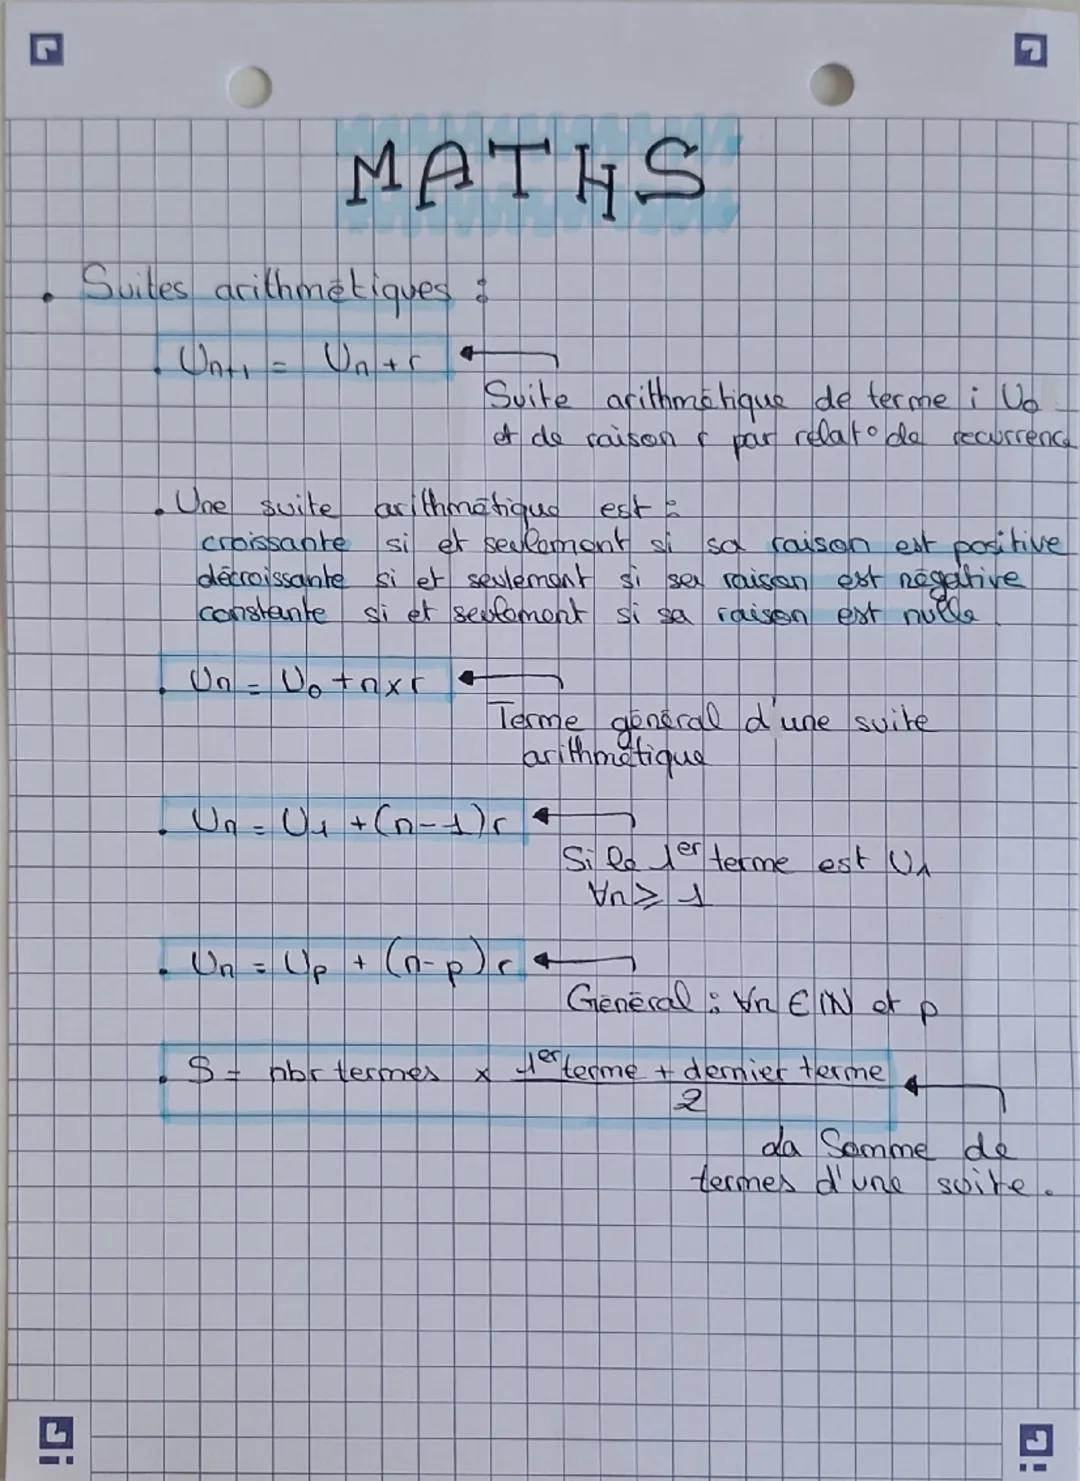 MATHS
• Suites arithmétiques :
. Un+1 = Un + r
Suite arithmétique de terme i U0
et de raison r par relat° de recurrence
. Une suite arithmétique est :
croissante si et seulement si sa raison est positive
décroissante si et seulement si sa raison est négative
constante si et seulement si sa raison est nulle
. Un = U0 + n x r
Terme général d'une suite
arithmétique
. Un = U1 + (n-1)r
Si le 1er terme est U1
∀n ⩾ 1
. Un = Up + (n-p)r
Général : ∀n ∈ ℕ et p
. S = nbr termes x 1er terme + dernier terme
2
La Somme de
termes d'une suite.